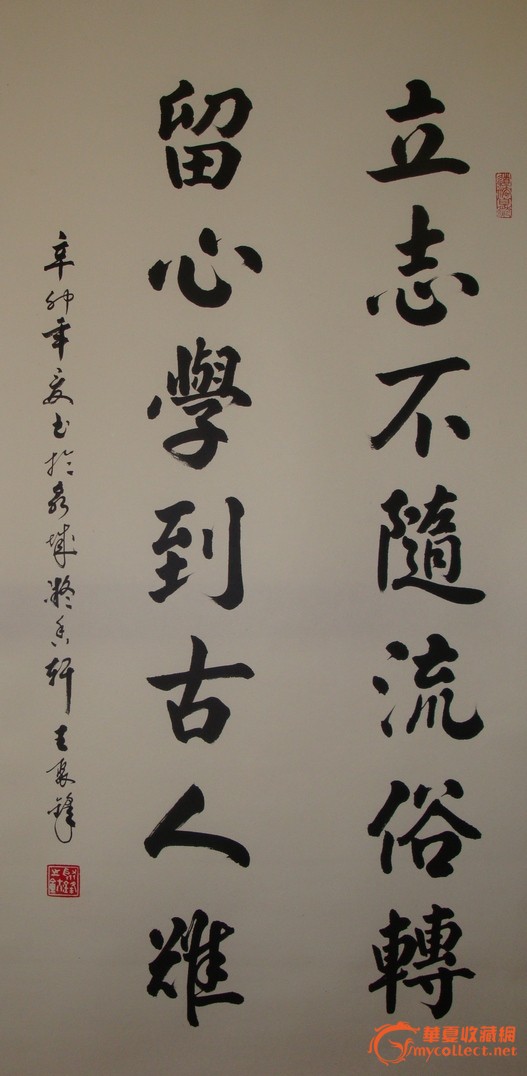 立志不隨流俗轉
留心學到古人難
辛卯年夏書於泉城凝香軒王聚鋒
華夏收藏網
mycollect.net